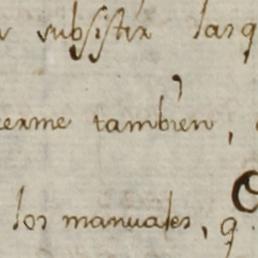 subsistir larg
erme tambien,
los manuales, q.